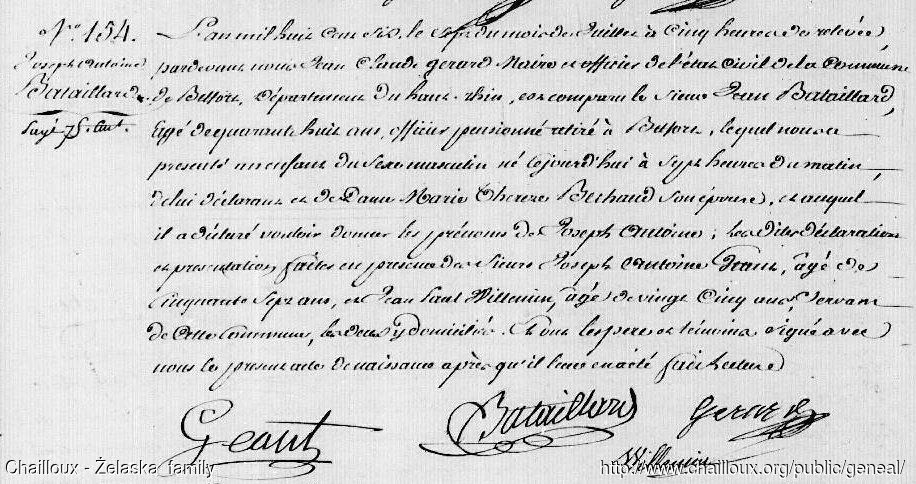 N.o 154.
Joseph Antoine
Bataillard
L'an mil huit cent dix, le sept du mois de Juillet à Cinq heures de relevée,
pardevant nous Jean Claude gerard Maire et officier de l'état civil de la Commune
de Belfort, département du haut-rhin, est comparu le Sieur Jean Bataillard,
agé de quarante huit ans, officier pensionné retiré à Belfort, lequel nous a
presenté un enfant du Sexe masculin né cejourd'hui à Sept heures du matin,
de lui déclarant et de Dame Marie Therese Berthaud Son épouse, et auquel
il a déclaré vouloir donner les prénoms de Joseph Antoine; les dites déclaration
et presentation faites en presence des Sieurs Joseph Antoine Geant, âgé de
Cinquante Sept ans, et Jean Paul Willemin, âgé de vingt Cinq ans,
de Cette Commune, les deux y domiciliés. Et ont les pere et témoins signé avec
nous le present acte de naissance après qu'il leur en a été fait lecture
Geant
Bataillard
Gerard
Willemin
Chailloux - Żelaska family
http://www.chailloux.org/public/geneal/